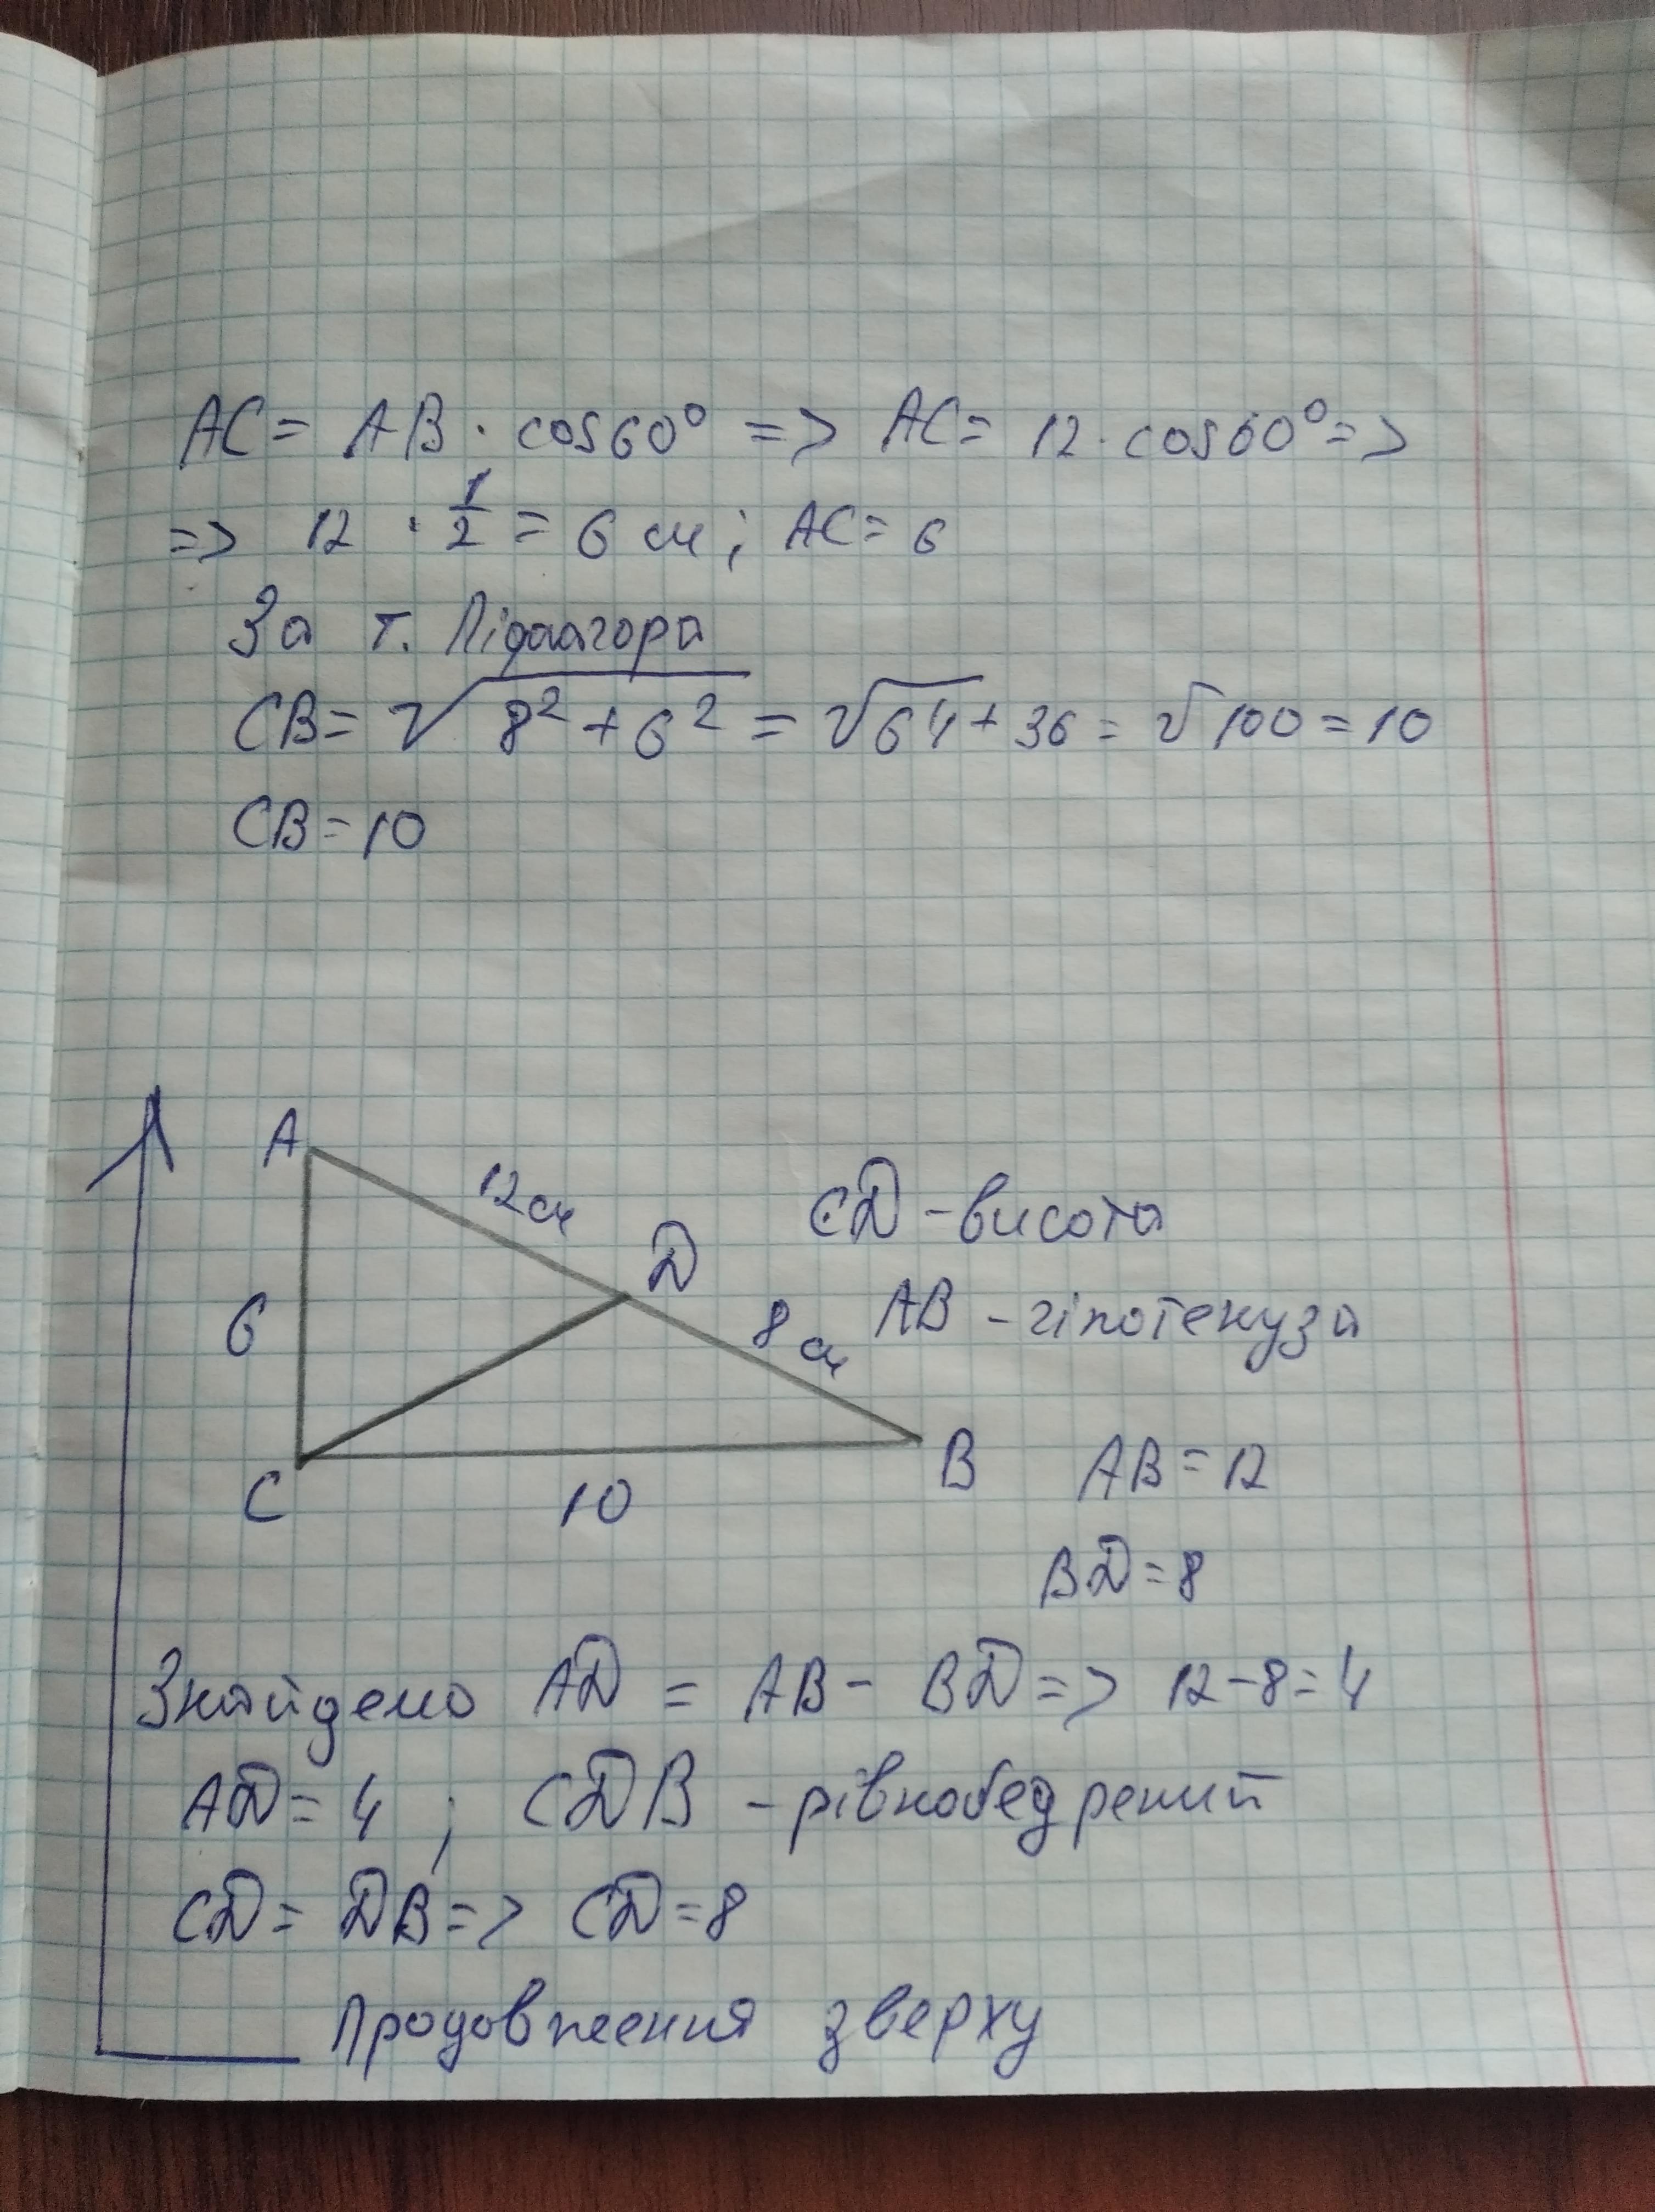 AC = AB · cos60° => AC = 12 · cos60° =>
=> 12 · 1/2 = 6 см ; AC = 6
За т. Піфагора
CB = √8² + 6² = √64 + 36 = √100 = 10
CB = 10
A
12 см
D
CD - висота
6
8 см
AB - гіпотенуза
C
10
B
AB = 12
BD = 8
Знайдемо AD = AB - BD => 12 - 8 = 4
AD = 4 ; CDB - рівнобедрений
CD = DB => CD = 8
Продовження зверху